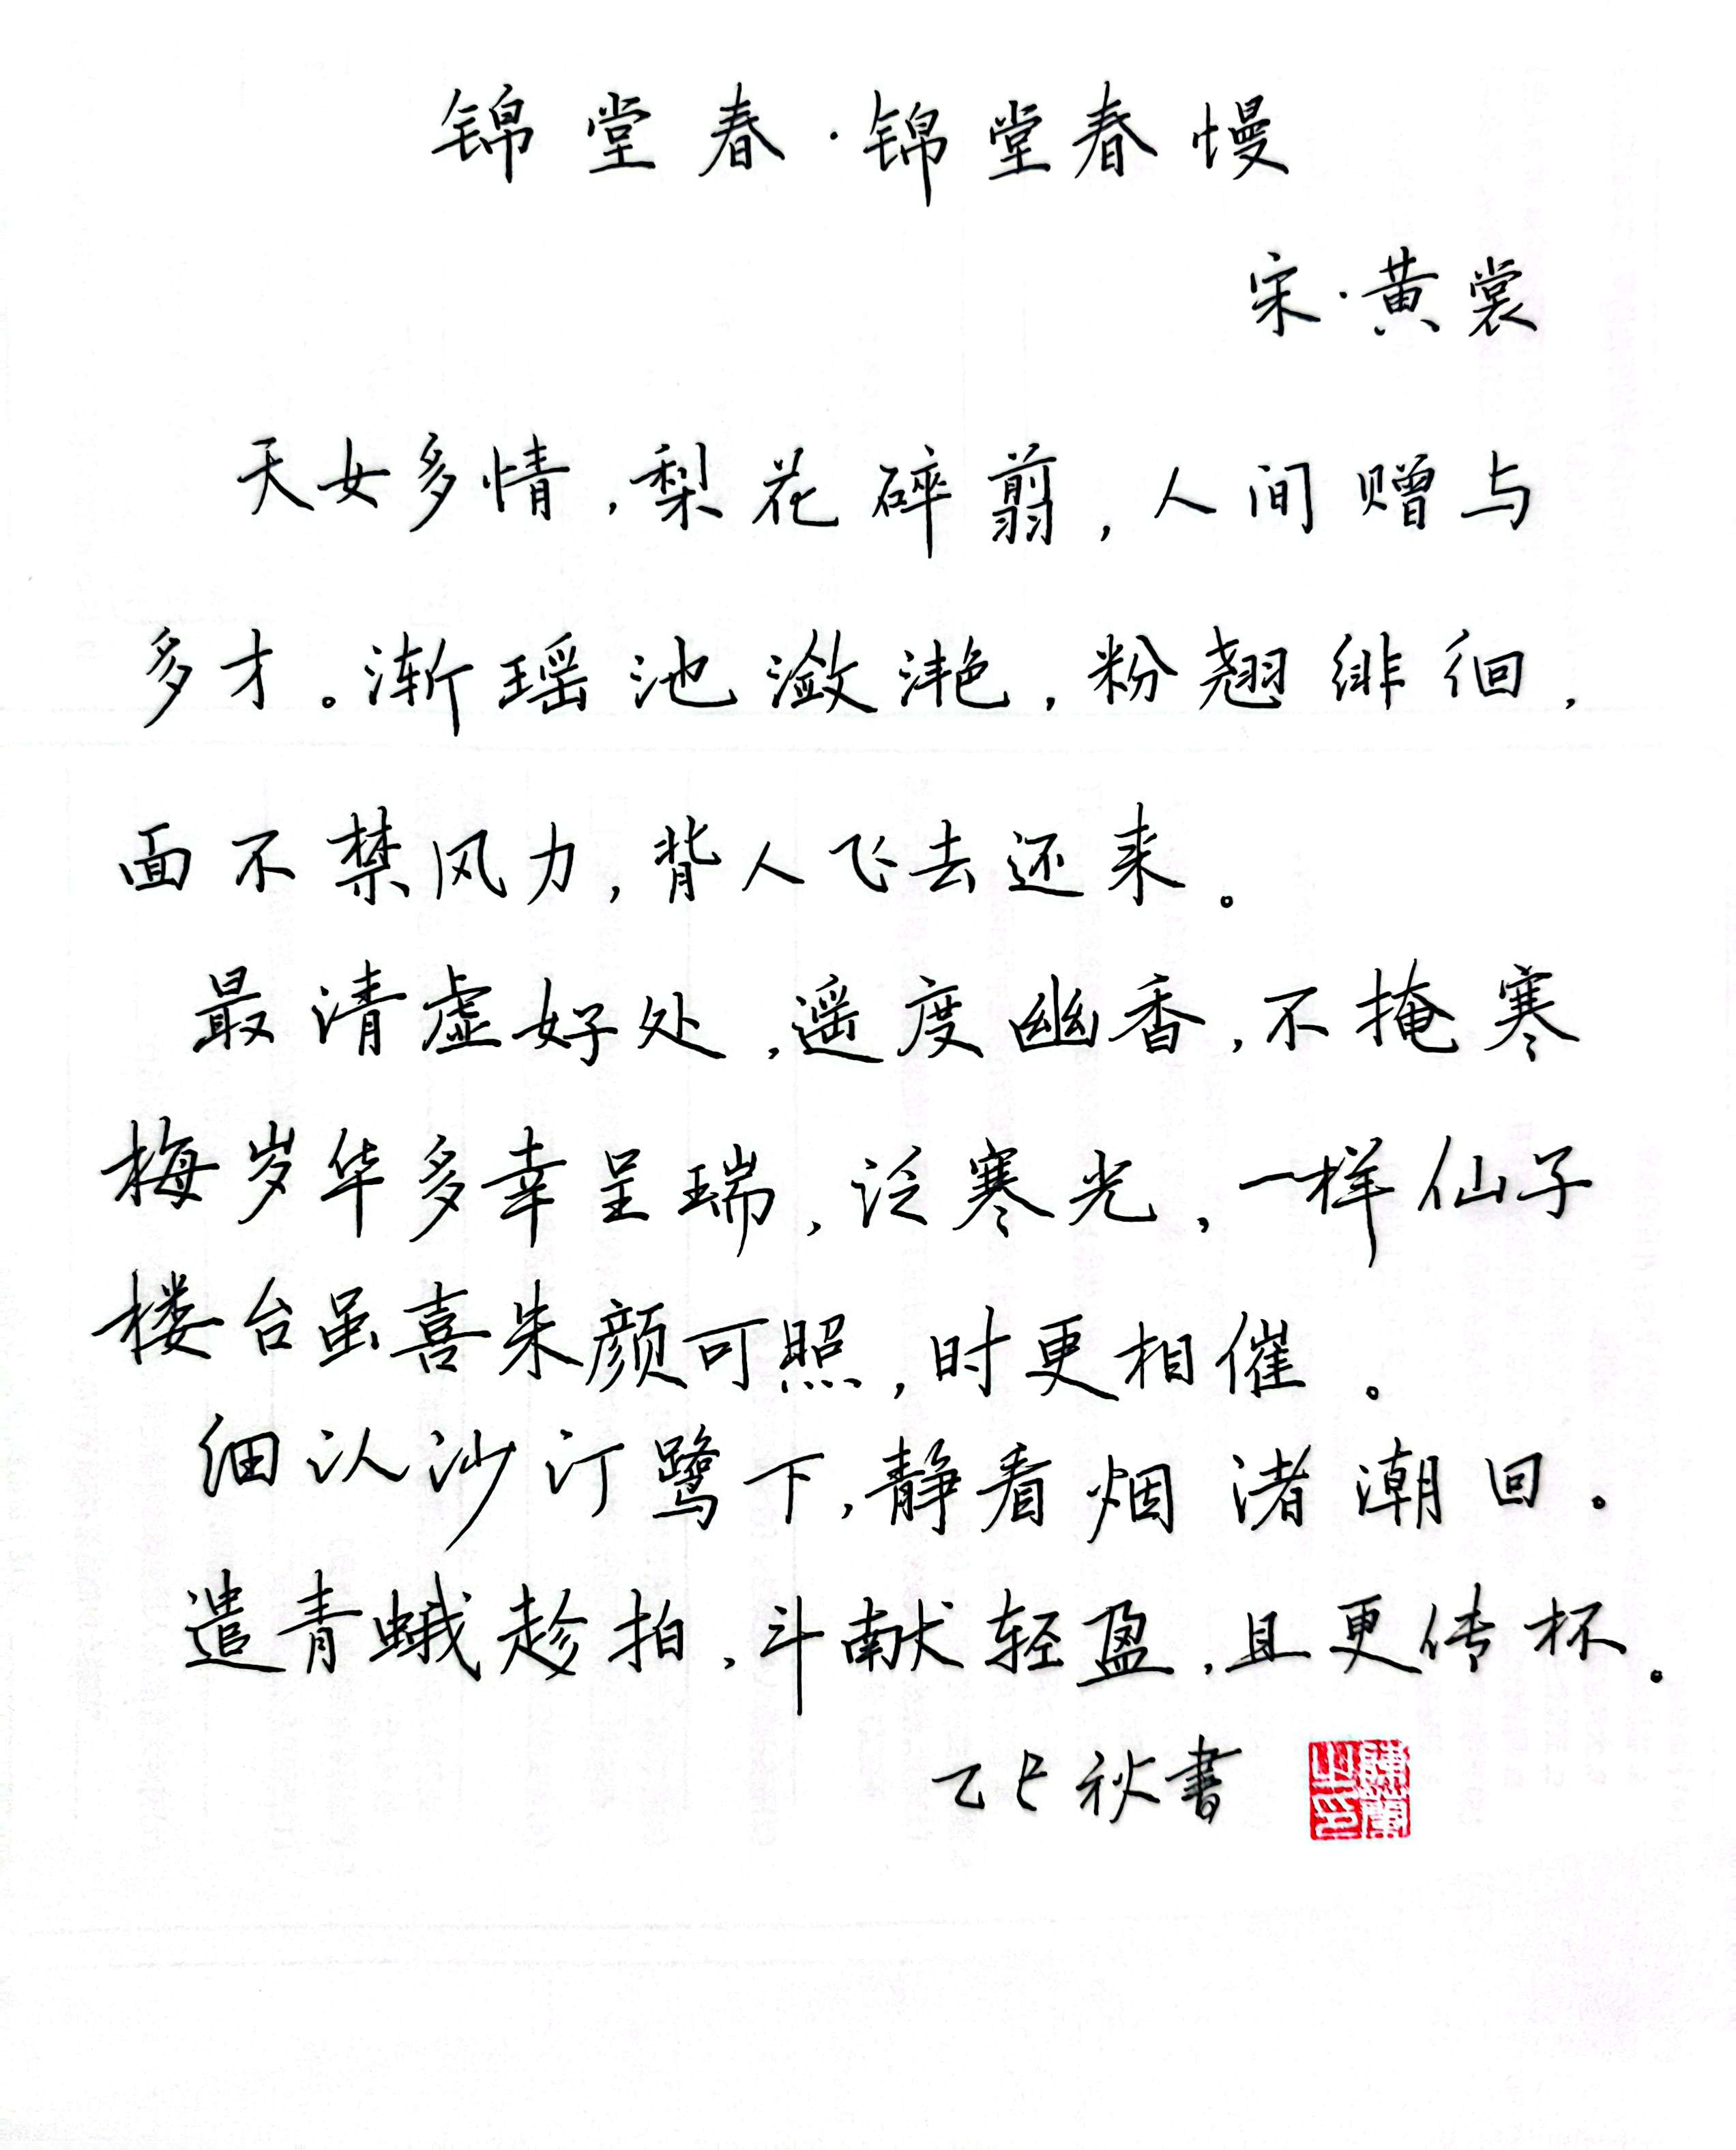 锦堂春·锦堂春慢
宋·黄裳
天女多情，梨花碎剪，人间赠与
多才。渐瑶池潋滟，粉翘绯徊，
面不禁风力，背人飞去还来。
最清虚好处，遥度幽香，不掩寒
梅岁华多幸呈瑞，泛寒光，一样仙子
楼台虽喜朱颜可照，时更相催。
细认沙汀鹭下，静看烟渚潮回。
遣青蛾趁拍，斗献轻盈，且更传杯。
乙巳秋书
陈兰之印